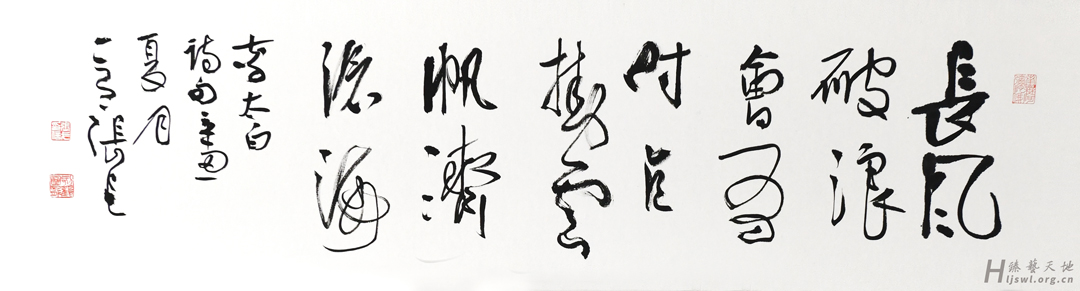 長風
破浪
會有
時直
掛雲
帆濟
滄海
李太白
詩句
夏月
臻藝天地
Hljswl.org.cn